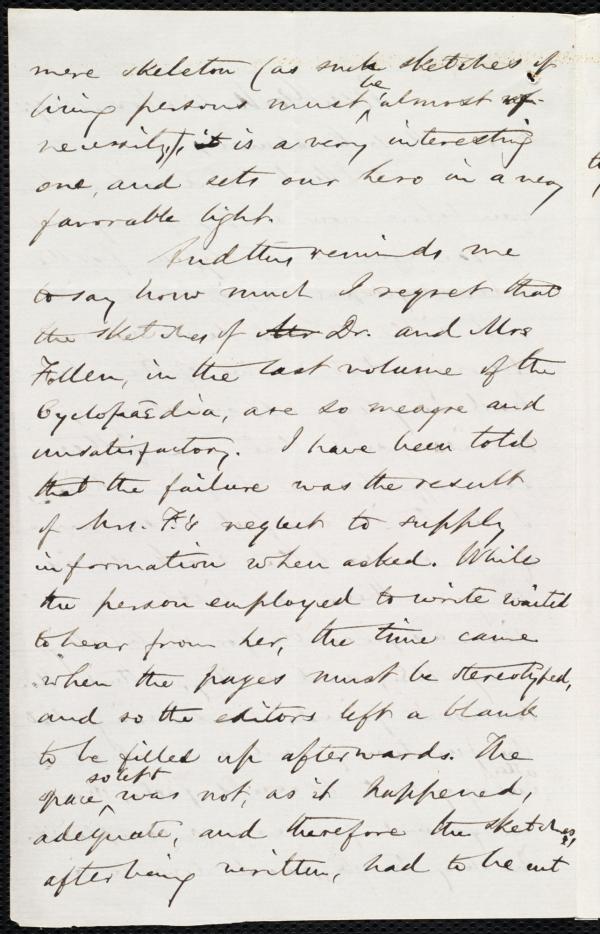 mere skeleton (as such sketches of
living persons must be almost of
necessity), it is a very interesting
one, and sets our hero in a very
favorable light.
And this reminds me
to say how much I regret that
the sketches of Mr Dr. and Mrs
Follen, in the last volume of the
Cyclopædia, are so meagre and
unsatisfactory. I have been told
that the failure was the result
of Mrs. F.'s neglect to supply
information when asked. While
the person employed to write waited
to hear from her, the time came
when the pages must be stereotyped,
and so the editors left a blank
to be filled up afterwards. The
space so left was not, as it happened,
adequate, and therefore the sketches,
after being written, had to be cut